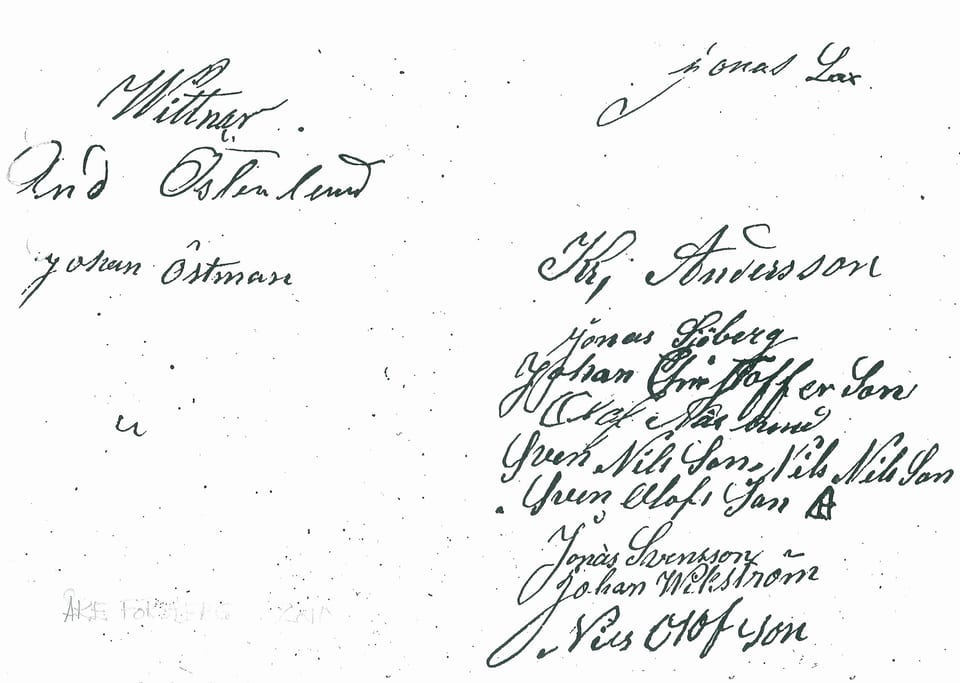 Wittnar
And Östenlund
Johan Östman
Jonas Lax
Kr, Andersson
Jonas Sjöberg
Johan Christoffer Son
Olof Näslund
Sven Nils Son, Nils Nils Son
Sven Olofs Son
Jonas Svensson
Johan Wikström
Nils Olofson
ÅKE